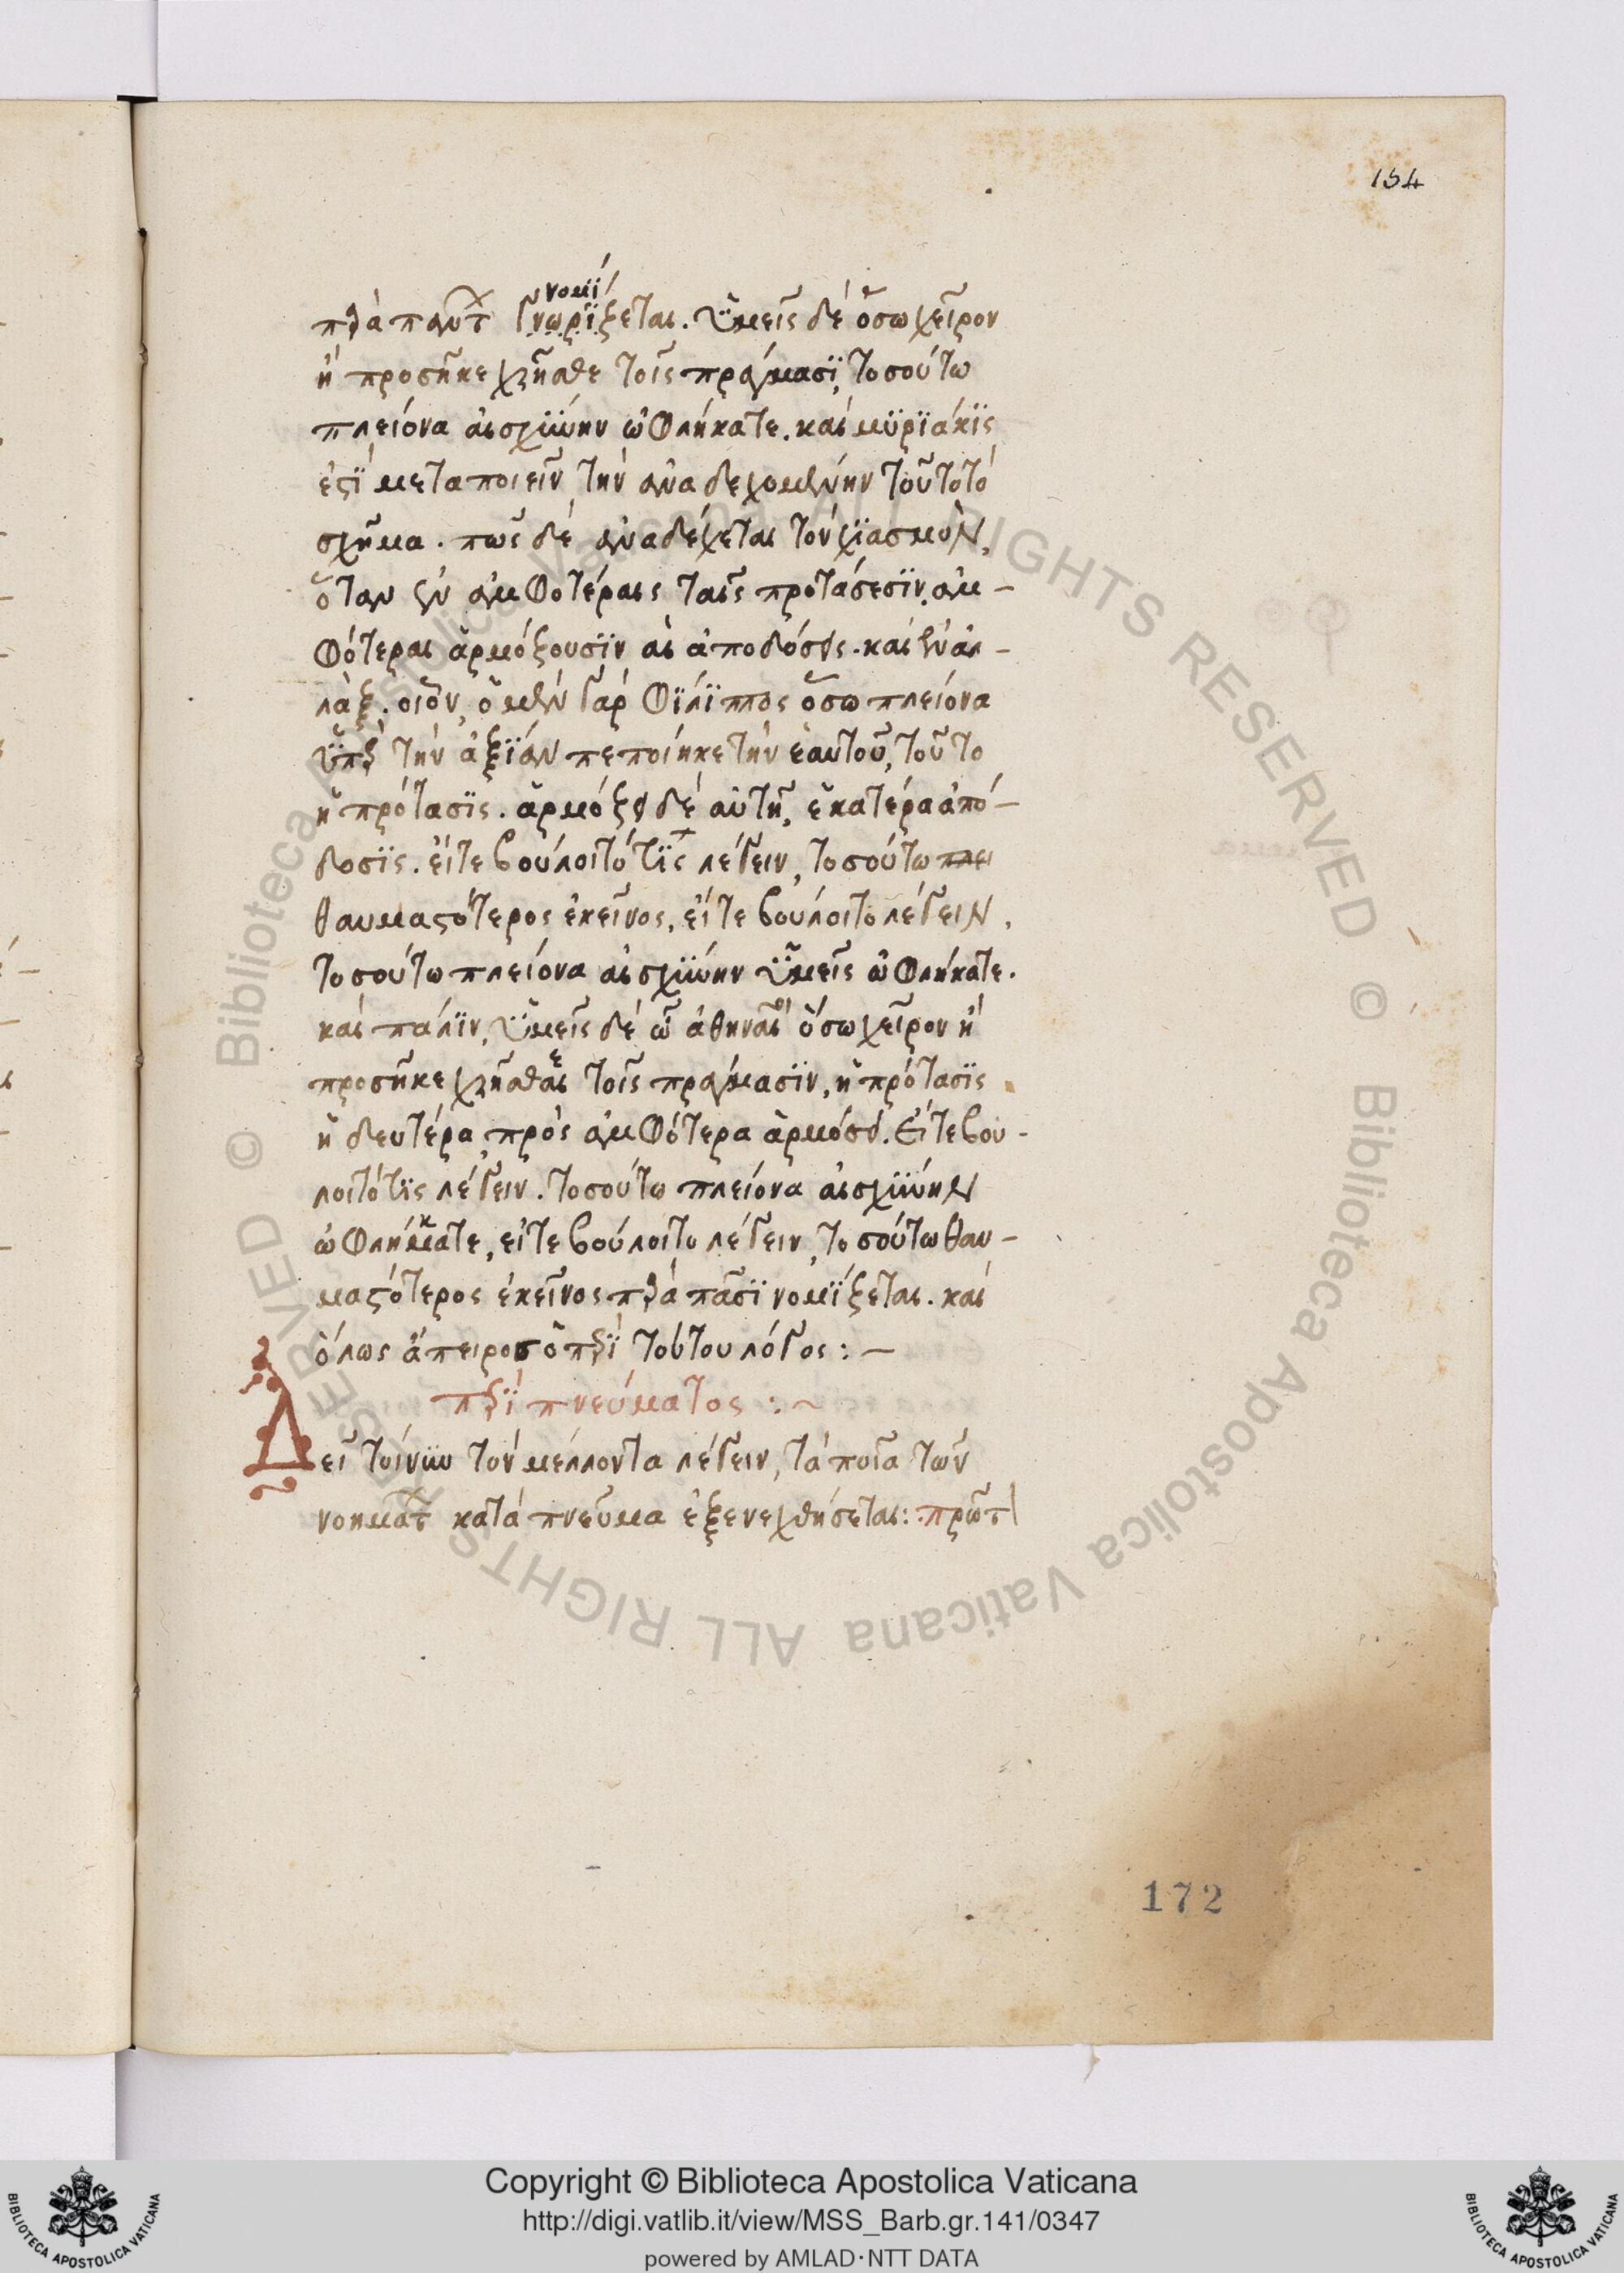 154
νομί
παρὰ πάντων γνωρίζεται. ὑμεῖς δὲ ὅσω χεῖρον
ἢ προσῆκε χρῆσθε τοῖς πράγμασι, τοσούτω
πλείονα αἰσχύνην ὠφλήκατε. καὶ μυριάκις
ἐστὶ μεταποιεῖν, τὴν ἀναδεχομένην τοῦτο τὸ
σχῆμα. πῶς δὲ ἀναδέχεται τὸν χιασμὸν,
ὅταν ἐν ἀμφοτέραις ταῖς προτάσεσιν, ἀμ-
φότεραι ἁρμόζουσιν αἱ ἀποδόσεις. καὶ ἐναλ-
λὰξ. οἷον, ὁ μὲν γὰρ Φίλιππος ὅσω πλείονα
ὑπὲρ τὴν ἀξίαν πεποίηκε τὴν ἑαυτοῦ, τοῦτο
ἡ πρότασις. ἁρμόζει δὲ αὐτῇ, ἑκατέρα ἀπό-
δοσις. εἴτε βούλοιτό τις λέγειν, τοσούτω πλει
θαυμαστότερος ἐκεῖνος, εἴτε βούλοιτο λέγειν,
τοσούτω πλείονα αἰσχύνην ὑμεῖς ὠφλήκατε.
καὶ πάλιν, ὑμεῖς δὲ ὦ ἀθηναῖοι ὅσω χεῖρον ἢ
προσῆκε χρῆσθαι τοῖς πράγμασιν, ἡ πρότασις
ἡ δευτέρα, πρὸς ἀμφότερα ἁρμόσει. εἴτε βού-
λοιτό τις λέγειν. τοσούτω πλείονα αἰσχύνην
ὠφλήκατε, εἴτε βούλοιτο λέγειν, τοσούτω θαυ-
μαστότερος ἐκεῖνος παρὰ πᾶσι νομίζεται. καὶ
ὅλως ἄπειρος ὁ περὶ τούτου λόγος : —
περὶ πνεύματος : ~
Δεῖ τοίνυν τὸν μέλλοντα λέγειν, τὰ ποῖα τῶν
νοημάτων κατὰ πνεῦμα ἐξενεχθήσεται: πρῶτ
172
Copyright © Biblioteca Apostolica Vaticana
http://digi.vatlib.it/view/MSS_Barb.gr.141/0347
powered by AMLAD·NTT DATA
BIBLIOTECA APOSTOLICA VATICANA
BIBLIOTECA APOSTOLICA VATICANA
© Biblioteca Apostolica Vaticana ALL RIGHTS RESERVED © Biblioteca Apostolica Vaticana ALL RIGHTS RESERVED